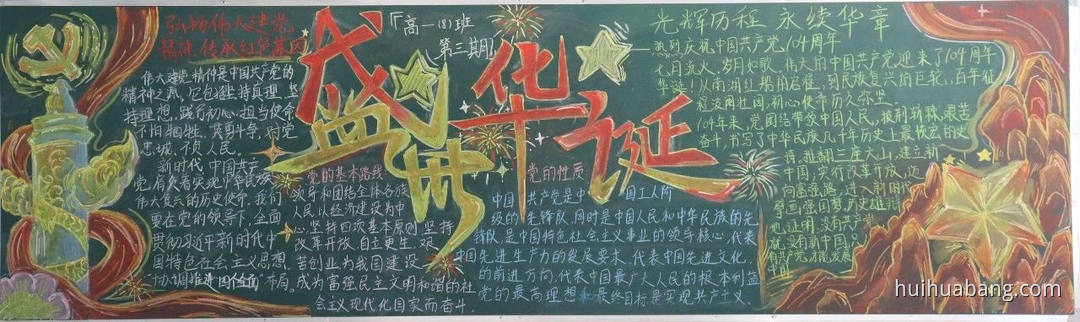 弘扬伟大建党
精神 传承红色基因
伟大建党精神是中国共产党的
精神之源，它包括坚持真理、坚
持理想，践行初心、担当使命
不怕牺牲、英勇斗争，对党
忠诚、不负人民。
新时代 中国共产
伟大复兴的历史使命，我们
要在党的领导下，全面
贯彻习近平新时代中
国特色社会主义思想，
布局，
「高一(8)班
第三期」
盛世华诞
党的基本路线
领导和团结全体各族
人民，以经济建设为中
心，坚持四项基本原则，坚持
改革开放，自主更生，艰
苦创业，为我国建设
成为富强民主文明和谐的社
会主义现代化国家而奋斗。
党的性质
中国共产党是中国工人阶
级的先锋队，同时是中国人民和中华民族的先
锋队，是中国特色社会主义事业的领导核心，代表
中国先进生产力的发展要求，代表中国先进文化
的前进方向，代表中国最广大人民的根本利益
党的最高理想和最终目标是实现共产主义。
光辉历程 永续华章
热烈庆祝中国共产党104周年
七月流火，岁月如歌，伟大的中国共产党迎来了104周年
华诞！从南湖红船的启程，到民族复兴的巨轮，百年征
程波澜壮阔，初心使命历久弥坚。
104年来，党团结带领中国人民，披荆斩棘，艰苦
奋斗，书写了中华民族几千年历史上最恢宏的史
诗，推翻三座大山，建立新
中国，实行改革开放，迈
向富强路，进入新时代，
擘画强国梦，历史雄辩
地证明，没有共产党
就没有新中国
huihuabang.com